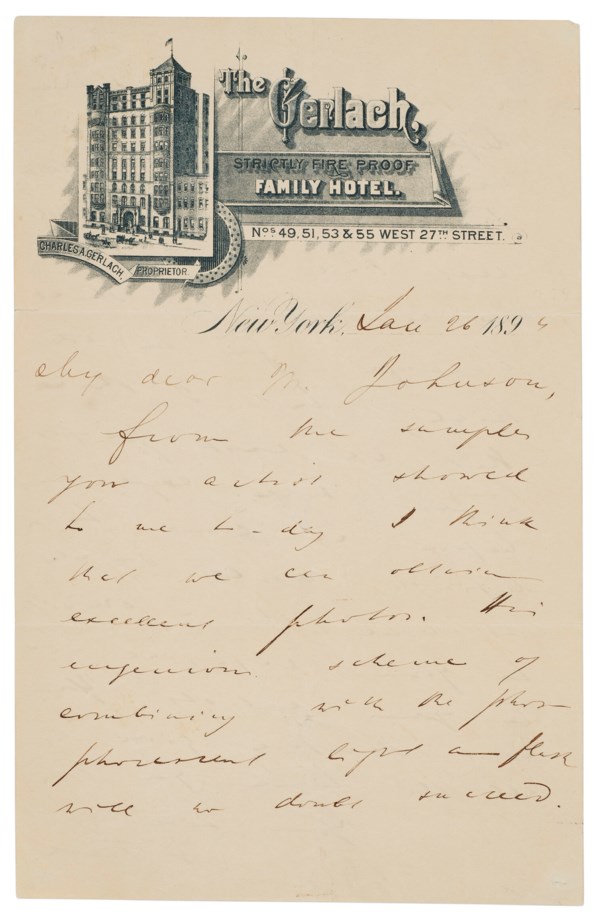 The Gerlach,
STRICTLY FIRE PROOF
FAMILY HOTEL.
Nos 49, 51, 53 & 55 WEST 27TH STREET.
CHARLES A. GERLACH,
PROPRIETOR.
New York, Jan 26 1894
My dear Mr. Johnson,
from the samples
your artist showed
to me to-day I think
that we can obtain
excellent photos. His
ingenious scheme of
combining with the phos-
phorescent light a flash
will no doubt succeed.